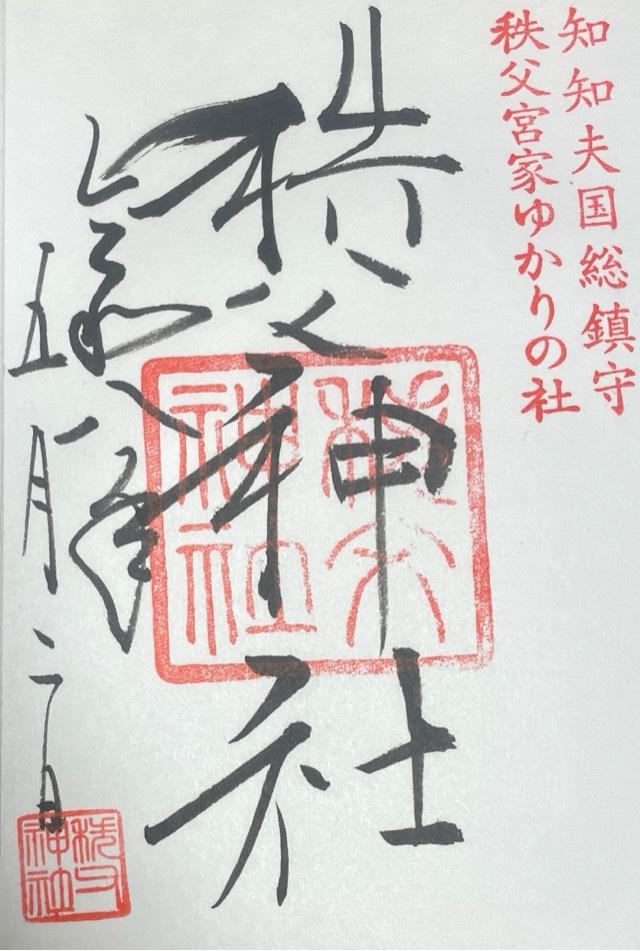 知知夫国総鎮守
秩父宮家ゆかりの社
秩父神社
秩父神社
令和年
五月二日
秩父神社